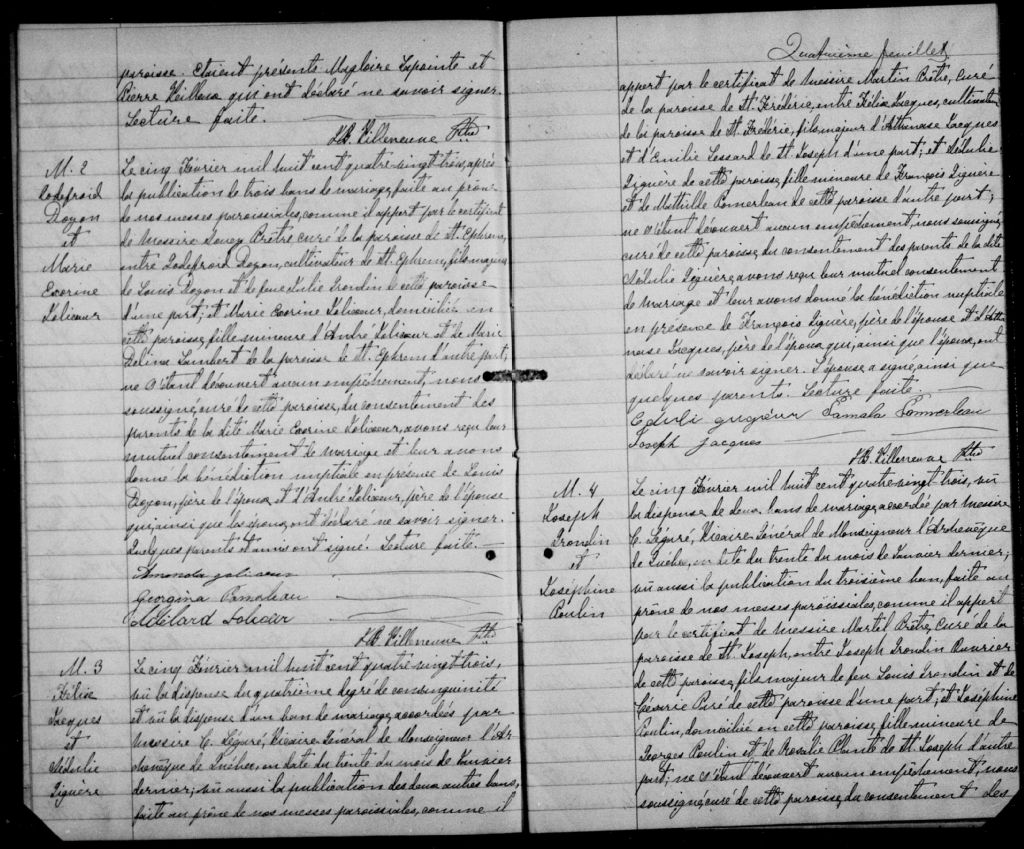 paroisse. Etaient présents Magloire Lapointe et
Pierre Veilleux qui ont déclaré ne savoir signer.
Lecture faite.
J.B. Villeneuve Ptre
M. 2
Godefroid
Doyon
et
Marie
Exorine
Jolicœur
Le cinq Février mil huit cent quatre-vingt trois, après
la publication de trois bans de mariage, faite au prône
de nos messes paroissiales, comme il appert par le certificat
de Messire Prêtre curé de la paroisse de St. Ephrem,
entre Godefroid Doyon, cultivateur de St. Ephrem, fils majeur
de Louis Doyon et de feue Julie Grondin de cette paroisse
d'une part; et Marie Exorine Jolicœur, domiciliée en
cette paroisse, fille mineure d'André Jolicœur et de Marie
Delina Lambert de la paroisse de St. Ephrem d'autre part;
ne s'étant découvert aucun empêchement, nous
soussigné, curé de cette paroisse, du consentement des
parents de la dite Marie Exorine Jolicœur, avons reçu leur
mutuel consentement de mariage et leur avons
donné la bénédiction nuptiale en présence de Louis
Doyon, père de l'époux, et d'André Jolicœur, père de l'épouse
qui, ainsi que les époux, ont déclaré ne savoir signer.
Quelques parents et amis ont signé. Lecture faite.
Amanda Jolicœur
Georgina Pomerleau
J.B. Villeneuve Ptre
M. 3
Félix
Jacques
et
Sédulie
Giguère
Le cinq Février mil huit cent quatre-vingt-trois,
vû la dispense du quatrième degré de consanguinité
et vû la dispense d'un ban de mariage, accordées par
Messire C. Légaré, Vicaire Général de Monseigneur l'Ar
chevêque de Québec, en date du trente du mois de Janvier
dernier; vû aussi la publication des deux autres bans,
faite au prône de nos messes paroissiales, comme il
Quatrième feuillet
appert par le certificat de Messire Martin Prêtre, Curé
de la paroisse de St. Frédéric, entre Félix Jacques, cultivateur
de la paroisse de St. Frédéric, fils majeur d'Athanase Jacques
et d'Emilie Lessard de St. Joseph d'une part; et Sédulie
Giguère de cette paroisse, fille mineure de François Giguère
et de Mathilde Pomerleau de cette paroisse d'autre part;
ne s'étant découvert aucun empêchement, nous soussigné,
curé de cette paroisse, du consentement des parents de la dite
Sédulie Giguère, avons reçu leur mutuel consentement
de mariage et leur avons donné la bénédiction nuptiale
en présence de François Giguère, père de l'épouse et d'Atha
nase Jacques, père de l'époux qui, ainsi que l'époux, ont
déclaré ne savoir signer. L'épouse a signé, ainsi que
quelques parents. Lecture faite.
Pamela Pomerleau
Joseph Jacques
J.B. Villeneuve Ptre
M. 4
Joseph
Grondin
et
Joséphine
Poulin
Le cinq Février mil huit cent quatre-vingt trois, vû
la dispense de deux bans de mariage, accordée par Messire
C. Légaré, Vicaire Général de Monseigneur l'Archevêque
de Québec, en date du trente du mois de Janvier dernier;
vû aussi la publication du troisième ban, faite au
prône de nos messes paroissiales, comme il appert
par le certificat de Messire Martel Prêtre, Curé de la
paroisse de St. Joseph, entre Joseph Grondin Ouvrier
de cette paroisse, fils majeur de feu Louis Grondin et de
Césarie Paré de cette paroisse d'une part; et Joséphine
Poulin, domiciliée en cette paroisse, fille mineure de
Georges Poulin et de Rosalie Plante de St. Joseph d'autre
part; ne s'étant découvert aucun empêchement, nous
soussigné, curé de cette paroisse, du consentement des